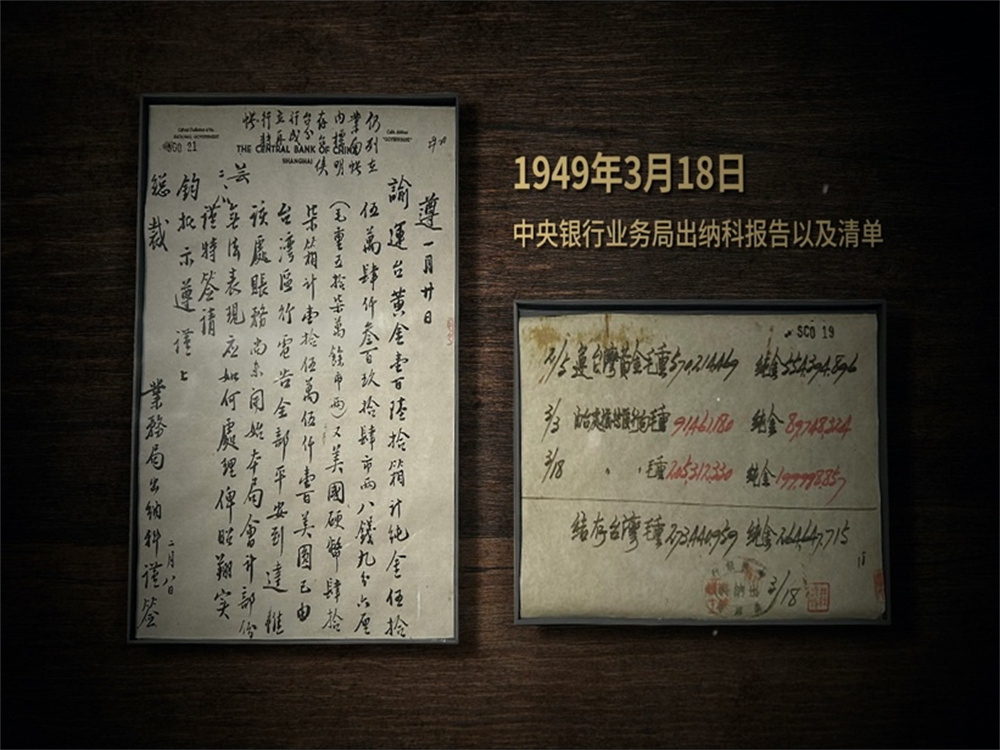 1949年3月18日
中央银行业务局出纳科报告以及清单
SCO 21
THE CENTRAL BANK OF CHINA
SHANGHAI
仍列在
內摽明
存台俟
台分
行成
立再
行轉
帐
遵一月廿日
諭運台黃金壹百陸拾箱計純金伍拾
伍萬肆仟叁百玖拾肆市兩八錢九分六厘
(毛重五拾柒萬餘市兩)又美國硬幣肆拾
柒箱計壹拾伍萬伍仟壹百美圓已由
台灣區行電告全部平安到達惟
該處賬務尚未開始本局會計部份
無法表現應如何處理俾昭翔实
謹特签請
鈞批示遵謹上
總裁
業務局出納科謹签
二月八日
SCO 19
2/5 運台灣黃金毛重570,214.469 純金554,394.896
3/3 毛重91,461.180 純金89,748.324
3/18 〃 〃 毛重205,312.330 純金199,998.857
结存台灣毛重273,440.959 純金264,647.715
3/18